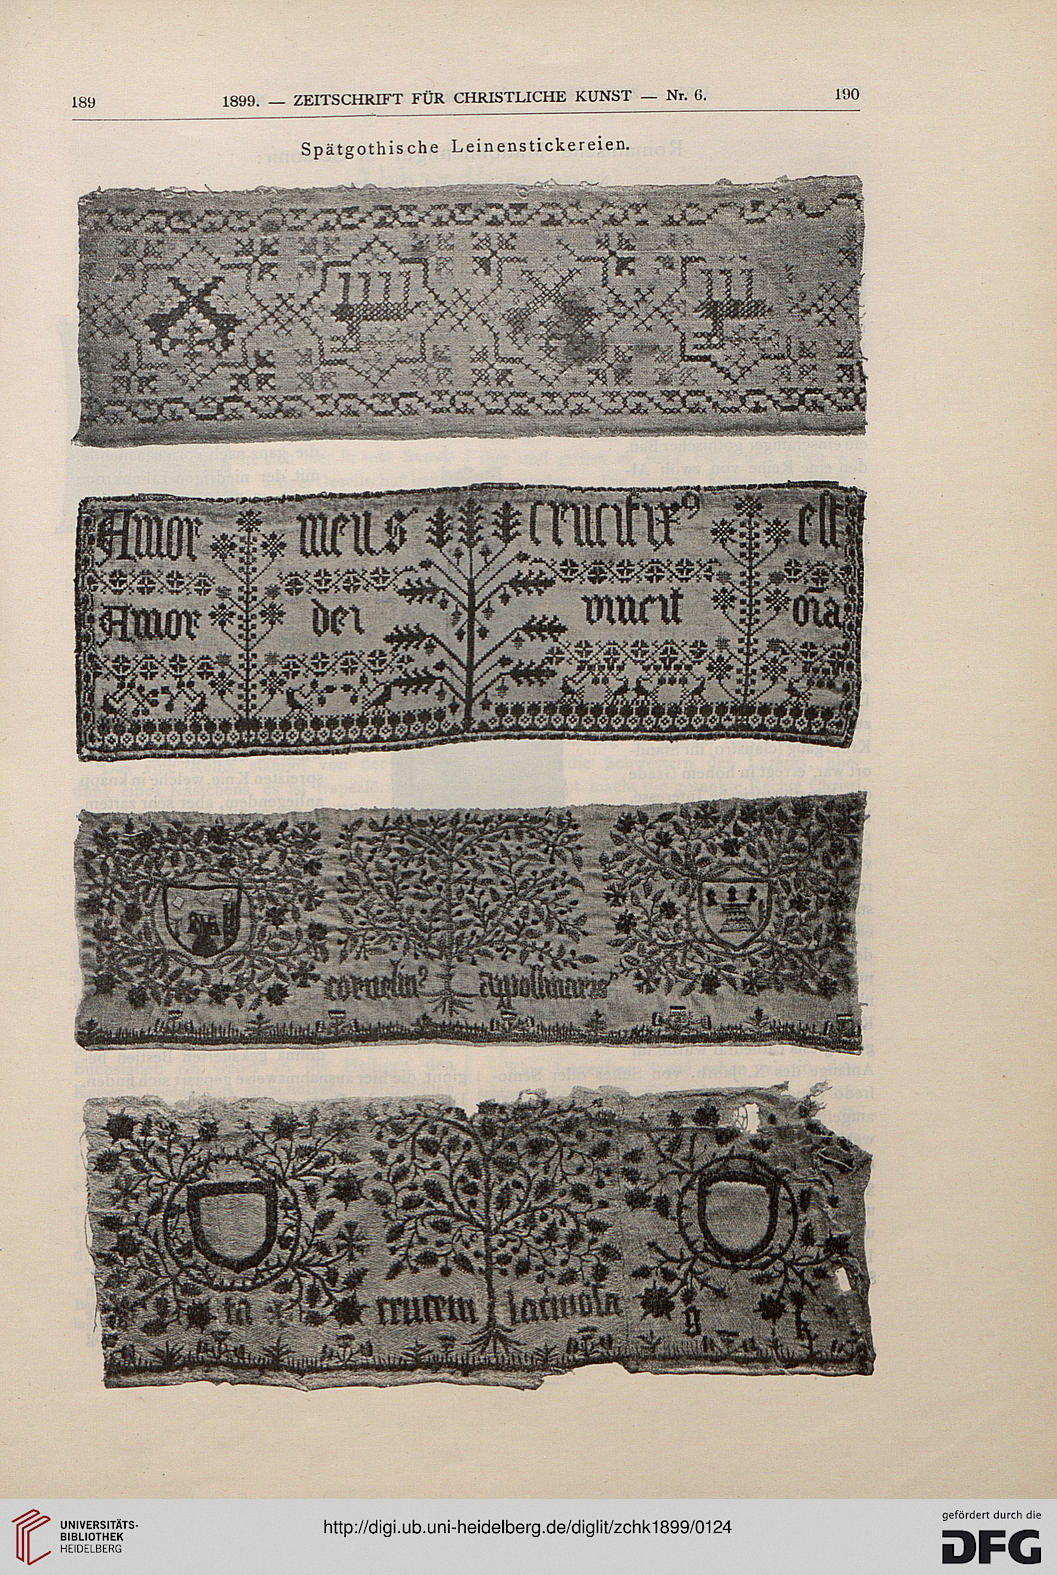 189
1899. — ZEITSCHRIFT FÜR CHRISTLICHE KUNST — Nr. 6.
190
Spätgothische Leinenstickereien.
Amor meus crucifix⁹ est
Amor dei vincit oīa
corneli⁹ appollinaris
ta crucem
g k
UNIVERSITÄTS-
BIBLIOTHEK
HEIDELBERG
http://digi.ub.uni-heidelberg.de/diglit/zchk1899/0124
gefördert durch die
DFG